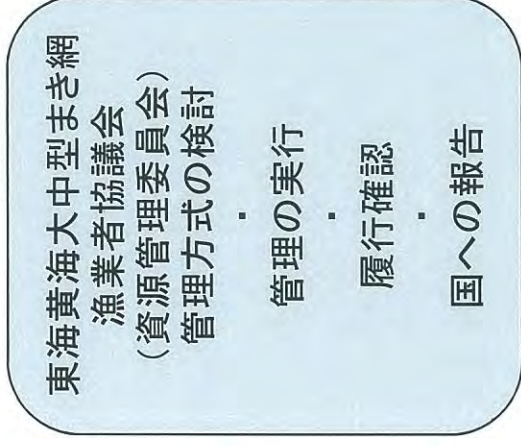 東海黄海大中型まき網
漁業者協議会
(資源管理委員会)
管理方式の検討
・
管理の実行
・
履行確認
・
国への報告